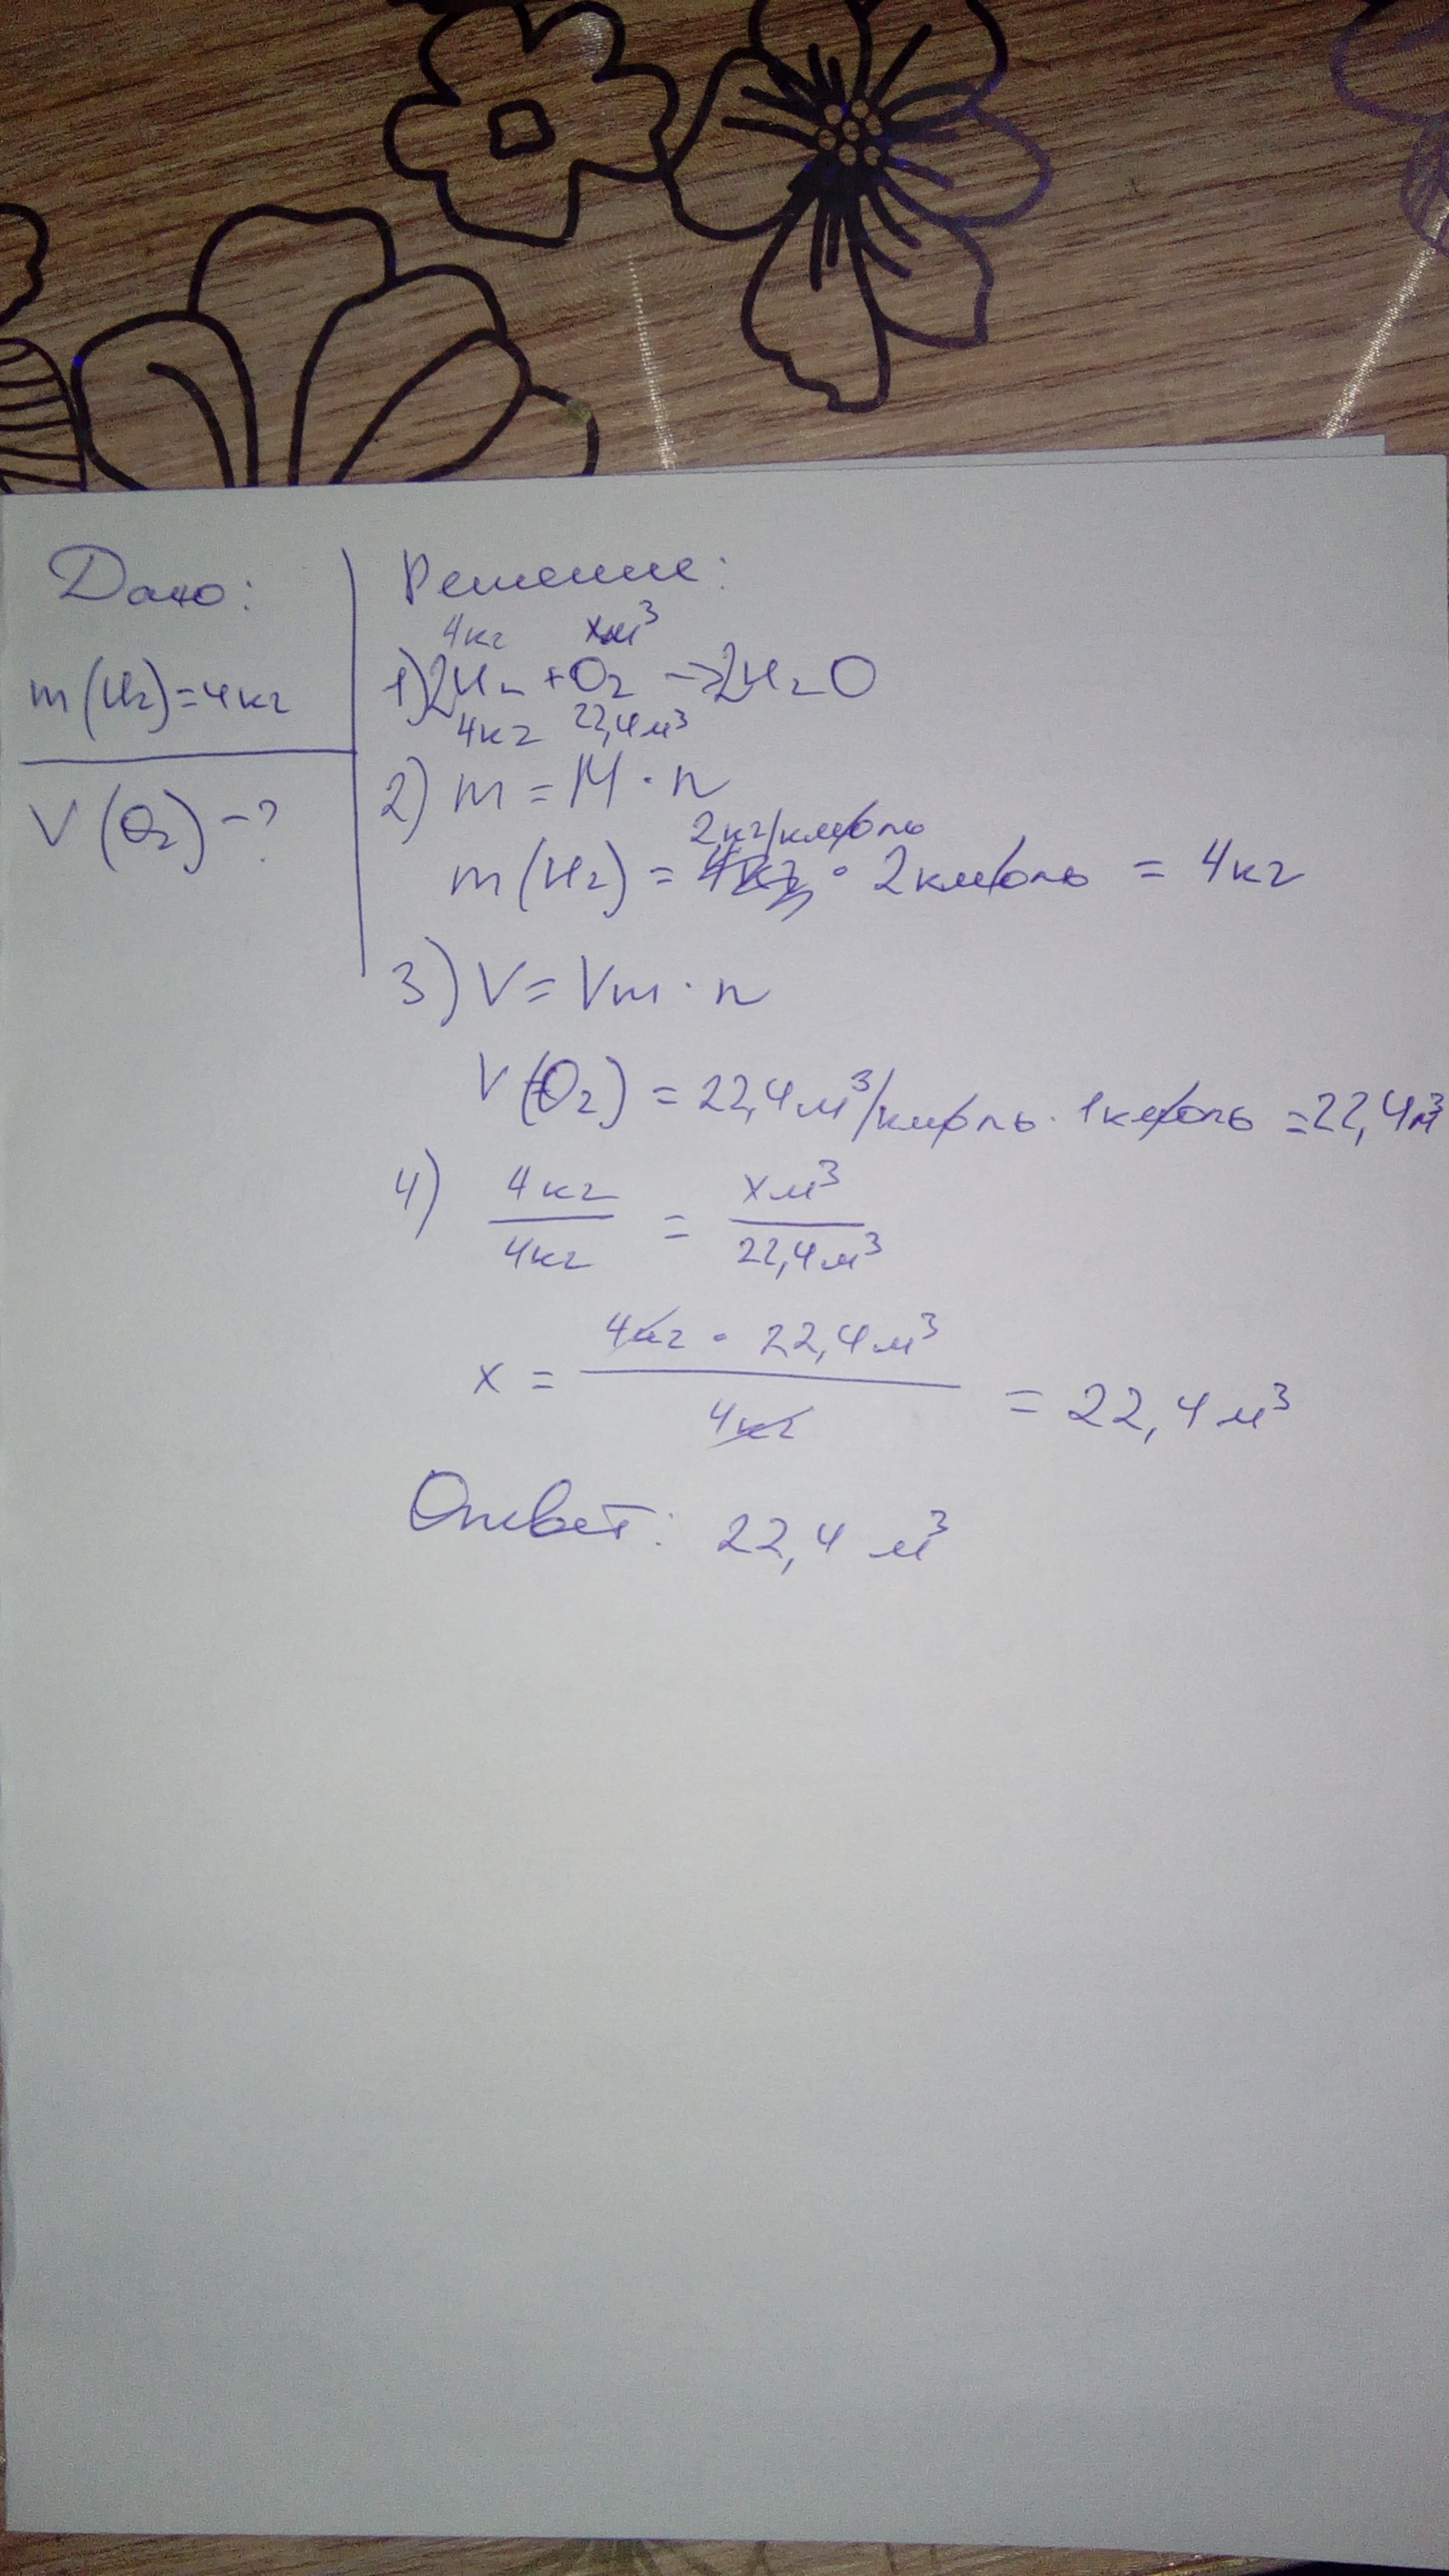 Дано:
m(H₂)=4кг
V(O₂)-?
Решение:
4кг xм³
1) 2H₂ + O₂ → 2H₂O
4кг 22,4м³
2) m = M · n
2кг/кмоль
m(H₂) = · 2кмоль = 4кг
3) V = Vm · n
V(O₂) = 22,4м³/кмоль · 1кмоль = 22,4м³
4) 4кг/4кг = xм³/22,4м³
x = 4кг · 22,4м³/4кг = 22,4м³
Ответ: 22,4 м³